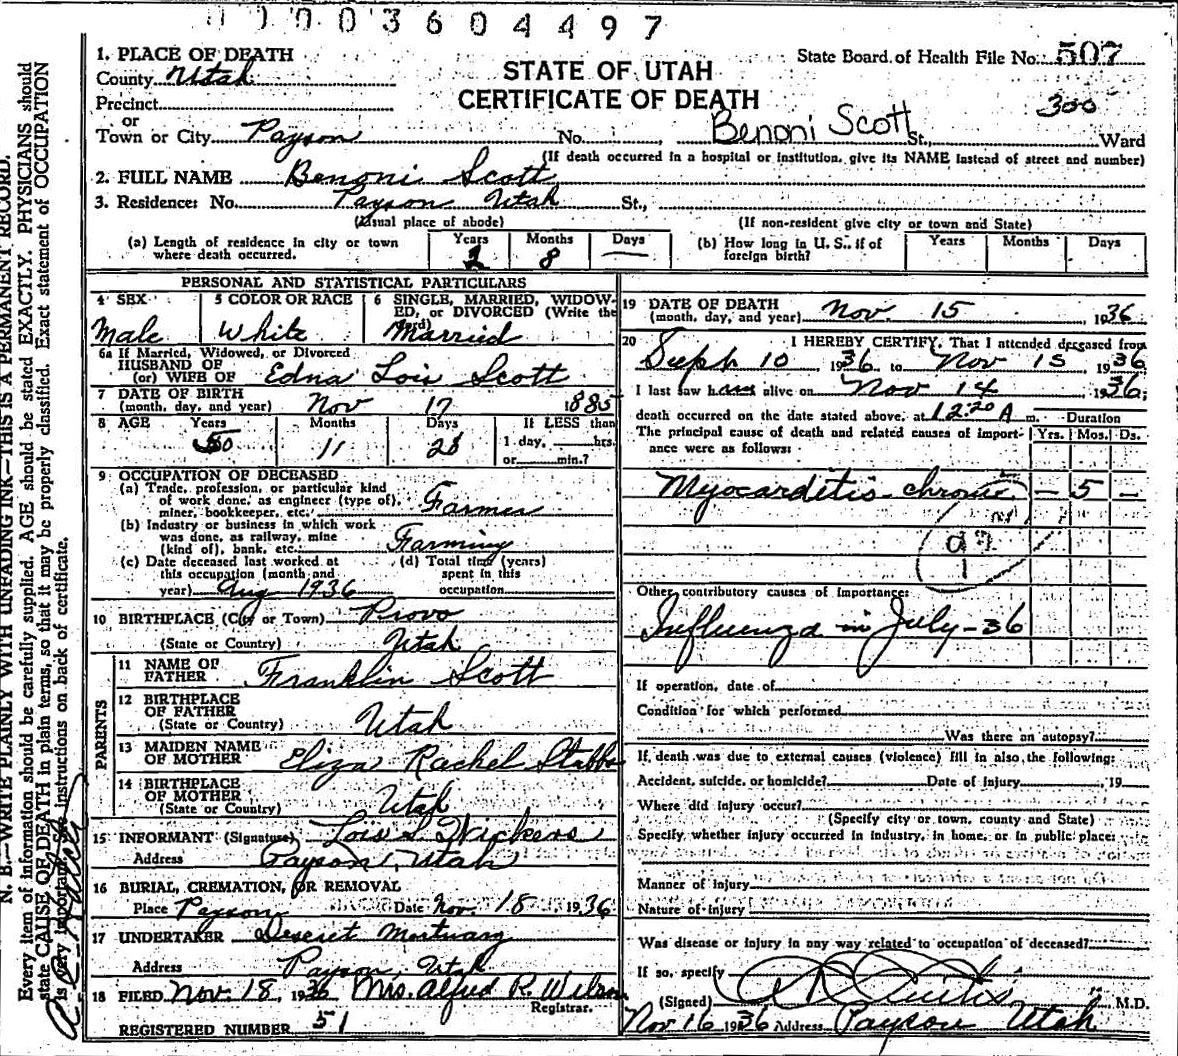 0003604497
1. PLACE OF DEATH
County Utah
Precinct
or
Town or City Payson No. St., Ward
State Board of Health File No. 507
STATE OF UTAH
CERTIFICATE OF DEATH
300
Benoni Scott
(If death occurred in a hospital or institution, give its NAME instead of street and number)
2. FULL NAME Benoni Scott
3. Residence: No. Payson Utah St.,
(Usual place of abode) (If non-resident give city or town and State)
(a) Length of residence in city or town where death occurred. Years Months 8 Days —
(b) How long in U. S., if of foreign birth? Years Months Days
PERSONAL AND STATISTICAL PARTICULARS
4 SEX Male
5 COLOR OR RACE White
6 SINGLE, MARRIED, WIDOWED, or DIVORCED (Write the word) Married
6a If Married, Widowed, or Divorced
HUSBAND OF
(or) WIFE OF Edna Lois Scott
7 DATE OF BIRTH
(month, day, and year) Nov 17 1885
8 AGE Years 50 Months 11 Days 28 If LESS than 1 day, hrs. or min.?
9 OCCUPATION OF DECEASED
(a) Trade, profession, or particular kind of work done, as engineer (type of), miner, bookkeeper, etc. Farmer
(b) Industry or business in which work was done, as railway, mine (kind of), bank, etc. Farming
(c) Date deceased last worked at this occupation (month and year) Aug 1936
(d) Total time (years) spent in this occupation
10 BIRTHPLACE (City or Town) Provo
(State or Country) Utah
PARENTS
11 NAME OF FATHER Franklin Scott
12 BIRTHPLACE OF FATHER
(State or Country) Utah
13 MAIDEN NAME OF MOTHER Eliza Rachel Stubbs
14 BIRTHPLACE OF MOTHER
(State or Country) Utah
15 INFORMANT (Signature) Lois S.
Address Payson, Utah
16 BURIAL, CREMATION, OR REMOVAL
Place Payson Date Nov. 18 1936
17 UNDERTAKER Deseret Mortuary
Address Payson, Utah
18 FILED Nov. 18, 1936 Mrs. Alfred R. Wilson
Registrar.
REGISTERED NUMBER 51
19 DATE OF DEATH
(month, day, and year) Nov. 15, 1936
20 I HEREBY CERTIFY, That I attended deceased from
Seph 10, 1936 to Nov 15, 1936
I last saw him alive on Nov 14, 1936;
death occurred on the date stated above, at 12:20 A m. Duration
The principal cause of death and related causes of importance were as follows: Yrs. Mos. Ds.
Myocarditis chronic — 5 —
Other contributory causes of importance:
Influenza in July-36
If operation, date of
Condition for which performed
Was there an autopsy?
If, death was due to external causes (violence) fill in also, the following:
Accident, suicide, or homicide? Date of injury, 19
Where did injury occur?
(Specify city or town, county and State)
Specify whether injury occurred in industry, in home, or in public place:
Manner of injury
Nature of injury
Was disease or injury in any way related to occupation of deceased?
If so, specify
(Signed) Curtis M.D.
Nov 16 1936 Address Payson Utah
N. B.—WRITE PLAINLY WITH UNFADING INK—THIS IS A PERMANENT RECORD.
Every item of information should be carefully supplied. AGE should be stated EXACTLY. PHYSICIANS should
state CAUSE OF DEATH in plain terms, so that it may be properly classified. Exact statement of OCCUPATION
is very important. See instructions on back of certificate.